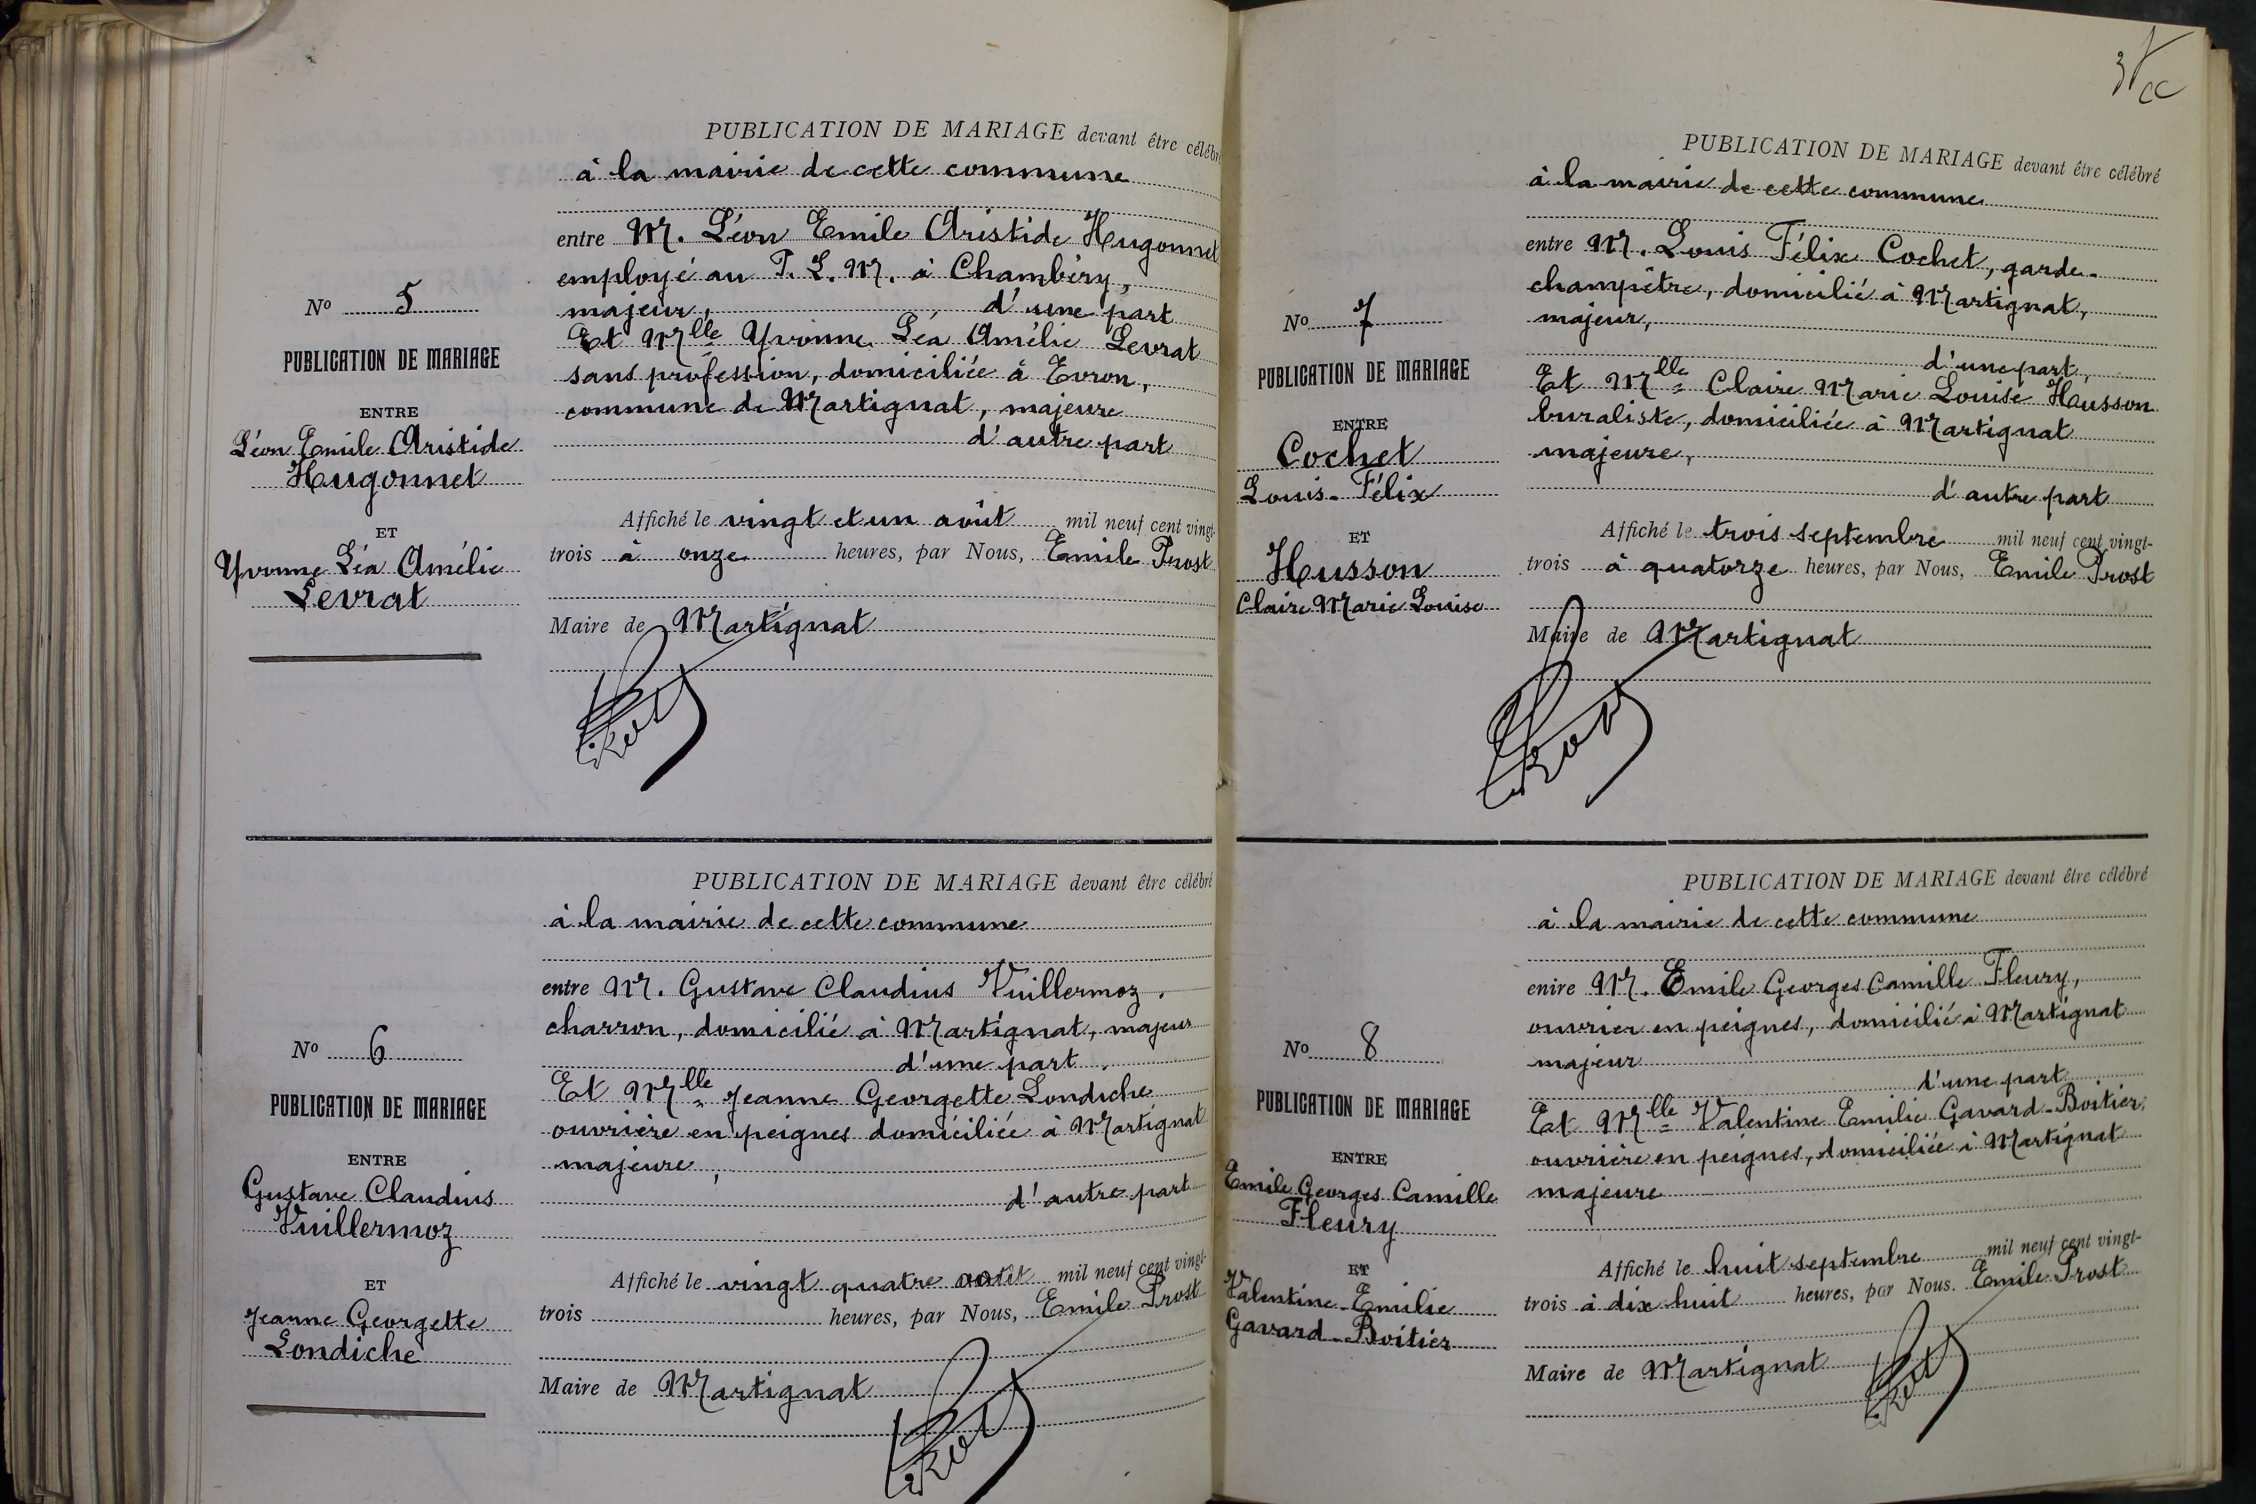 PUBLICATION DE MARIAGE devant être célébré
à la mairie de cette commune
entre M. Léon Emile Aristide Hugonnet
employé au P. L. M. à Chambéry,
majeur, d'une part
Et Mlle Yvonne Léa Amélie Levrat
sans profession, domiciliée à Evron,
commune de Martignat, majeure
d'autre part
Affiché le vingt et un août mil neuf cent vingt-
trois à onze heures, par Nous, Emile Prost
Maire de Martignat
Prost
No 5
PUBLICATION DE MARIAGE
ENTRE
Léon Emile Aristide
Hugonnet
ET
Yvonne Léa Amélie
Levrat
PUBLICATION DE MARIAGE devant être célébré
à la mairie de cette commune
entre M. Gustave Claudius Vuillermoz,
charron, domicilié à Martignat, majeur
d'une part.
Et Mlle Jeanne Georgette Londiche
ouvrière en peignes domiciliée à Martignat
majeure,
d'autre part
Affiché le vingt quatre août mil neuf cent vingt-
trois heures, par Nous, Emile Prost
Maire de Martignat
Prost
No 6
PUBLICATION DE MARIAGE
ENTRE
Gustave Claudius
Vuillermoz
ET
Jeanne Georgette
Londiche
PUBLICATION DE MARIAGE devant être célébré
à la mairie de cette commune
entre M. Louis Félix Cochet, garde-
champêtre, domicilié à Martignat,
majeur,
d'une part,
Et Mlle Claire Marie Louise Husson
buraliste, domiciliée à Martignat
majeure,
d'autre part
Affiché le trois septembre mil neuf cent vingt-
trois à quatorze heures, par Nous, Emile Prost
Maire de Martignat
Prost
No 7
PUBLICATION DE MARIAGE
ENTRE
Cochet
Louis-Félix
ET
Husson
Claire Marie Louise
PUBLICATION DE MARIAGE devant être célébré
à la mairie de cette commune
entre M. Emile Georges Camille Fleury,
ouvrier en peignes, domicilié à Martignat
majeur
d'une part
Et Mlle Valentine Emilie Gavard-Boitier,
ouvrière en peignes, domiciliée à Martignat
majeure
Affiché le huit septembre mil neuf cent vingt-
trois à dix-huit heures, par Nous. Emile Prost
Maire de Martignat
Prost
No 8
PUBLICATION DE MARIAGE
ENTRE
Emile Georges Camille
Fleury
ET
Valentine-Emilie
Gavard-Boitier